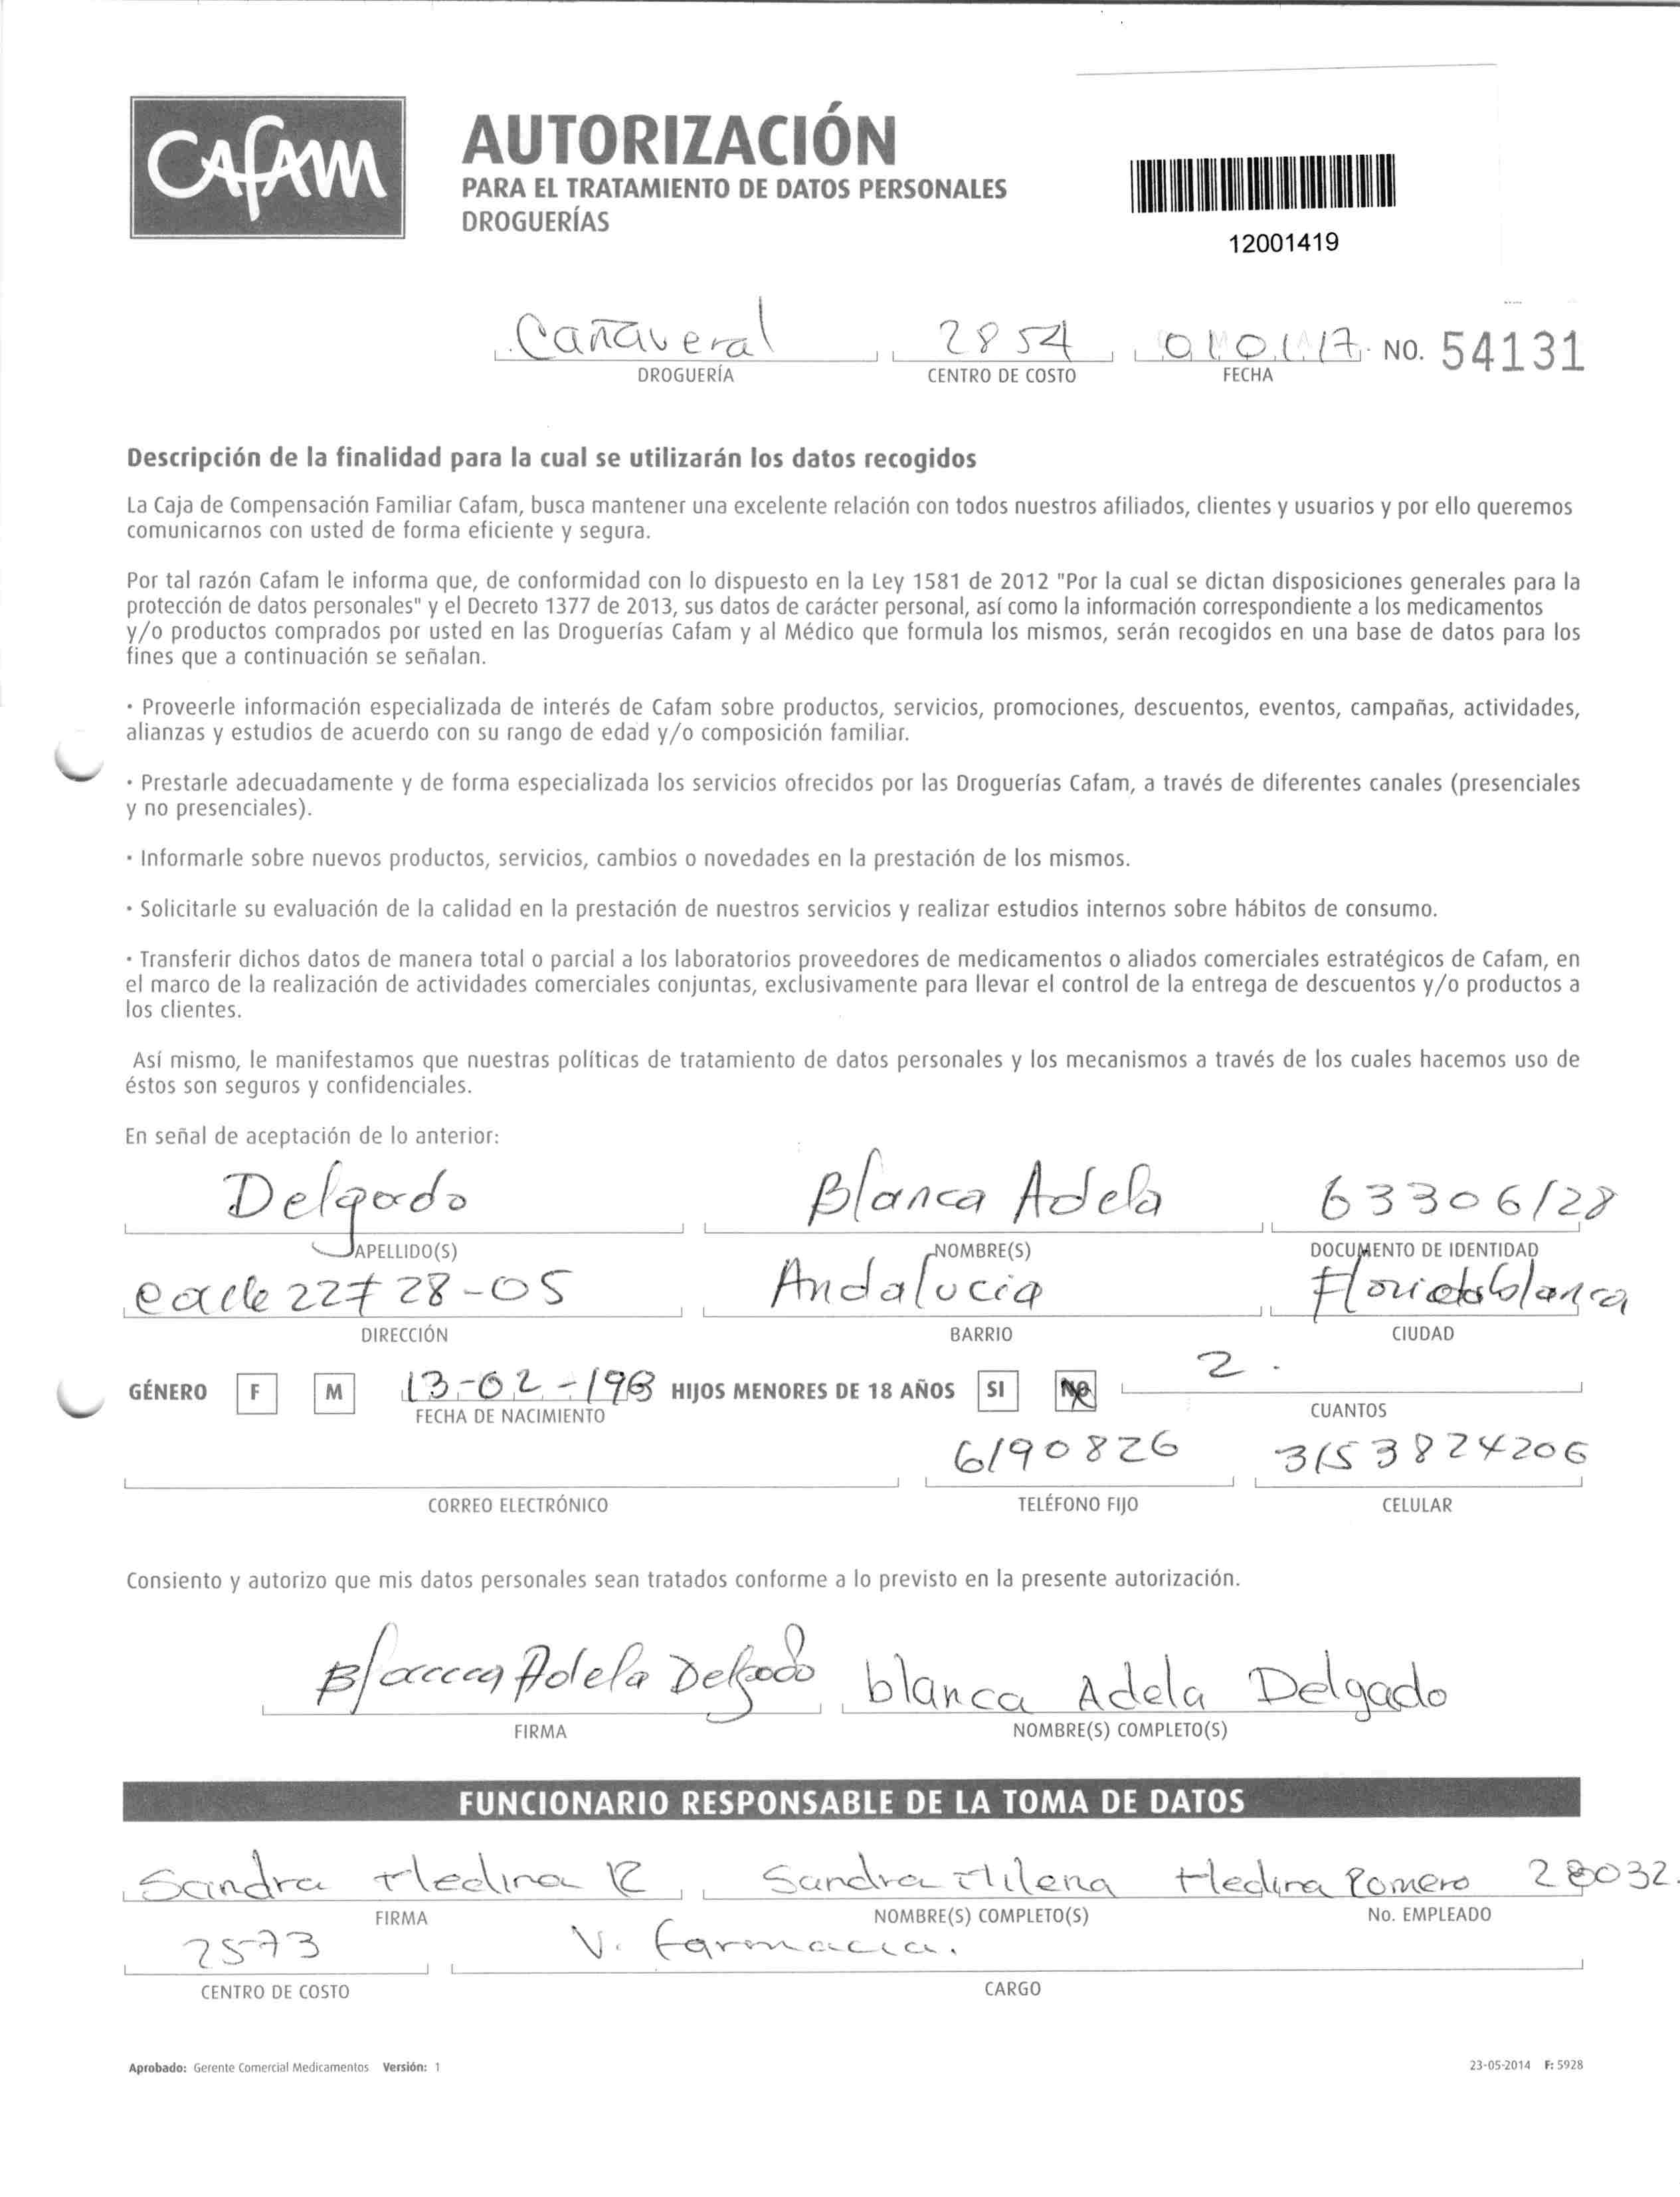 Cafam
AUTORIZACIÓN
PARA EL TRATAMIENTO DE DATOS PERSONALES
DROGUERÍAS
12001419
Cañaveral 2854 01 01 17 NO. 54131
DROGUERÍA CENTRO DE COSTO FECHA
Descripción de la finalidad para la cual se utilizarán los datos recogidos
La Caja de Compensación Familiar Cafam, busca mantener una excelente relación con todos nuestros afiliados, clientes y usuarios y por ello queremos
comunicarnos con usted de forma eficiente y segura.
Por tal razón Cafam le informa que, de conformidad con lo dispuesto en la Ley 1581 de 2012 "Por la cual se dictan disposiciones generales para la
protección de datos personales" y el Decreto 1377 de 2013, sus datos de carácter personal, así como la información correspondiente a los medicamentos
y/o productos comprados por usted en las Droguerías Cafam y al Médico que formula los mismos, serán recogidos en una base de datos para los
fines que a continuación se señalan.
· Proveerle información especializada de interés de Cafam sobre productos, servicios, promociones, descuentos, eventos, campañas, actividades,
alianzas y estudios de acuerdo con su rango de edad y/o composición familiar.
· Prestarle adecuadamente y de forma especializada los servicios ofrecidos por las Droguerías Cafam, a través de diferentes canales (presenciales
y no presenciales).
· Informarle sobre nuevos productos, servicios, cambios o novedades en la prestación de los mismos.
· Solicitarle su evaluación de la calidad en la prestación de nuestros servicios y realizar estudios internos sobre hábitos de consumo.
· Transferir dichos datos de manera total o parcial a los laboratorios proveedores de medicamentos o aliados comerciales estratégicos de Cafam, en
el marco de la realización de actividades comerciales conjuntas, exclusivamente para llevar el control de la entrega de descuentos y/o productos a
los clientes.
Así mismo, le manifestamos que nuestras políticas de tratamiento de datos personales y los mecanismos a través de los cuales hacemos uso de
éstos son seguros y confidenciales.
En señal de aceptación de lo anterior:
Delgado Blanca Adela 63306128
APELLIDO(S) NOMBRE(S) DOCUMENTO DE IDENTIDAD
28-05 Andalucia Floridablanca
DIRECCIÓN BARRIO CIUDAD
GÉNERO F M 13-02- HIJOS MENORES DE 18 AÑOS SI NO 2.
FECHA DE NACIMIENTO CUANTOS
6190826 3153824206
CORREO ELECTRÓNICO TELÉFONO FIJO CELULAR
Consiento y autorizo que mis datos personales sean tratados conforme a lo previsto en la presente autorización.
Blanca Adela Delgado blanca Adela Delgado
FIRMA NOMBRE(S) COMPLETO(S)
FUNCIONARIO RESPONSABLE DE LA TOMA DE DATOS
Sandra Medina R Sandra Milena Medina Romero 28032
FIRMA NOMBRE(S) COMPLETO(S) No. EMPLEADO
2573 V. farmacia.
CENTRO DE COSTO CARGO
Aprobado: Gerente Comercial Medicamentos Versión: 1 23-05-2014 F: 5928